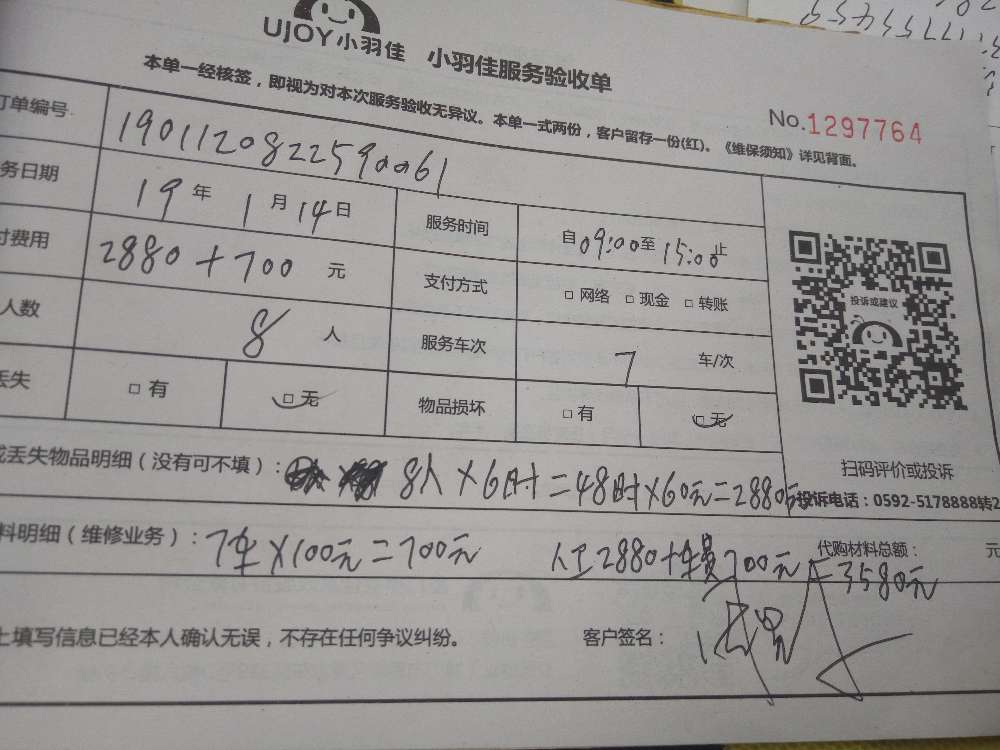 UJOY小羽佳 小羽佳服务验收单
本单一经核签，即视为对本次服务验收无异议。本单一式两份，客户留存一份(红)。《维保须知》详见背面。
No.1297764
订单编号 1901120822590061
务日期 19年1月14日 服务时间 自09:00至15:00止
付费用 2880+700元 支付方式 □网络 □现金 □转账
人数 8人 服务车次 7车/次
丢失 □有 □无 物品损坏 □有 □无
投诉或建议
扫码评价或投诉
投诉电话：0592-5178888转2
或丢失物品明细（没有可不填）：8人×6时=48时×60元=2880元
料明细（维修业务）：7车×100元=700元 人工2880+车费700元=3580元
代购材料总额： 元
上填写信息已经本人确认无误，不存在任何争议纠纷。 客户签名：